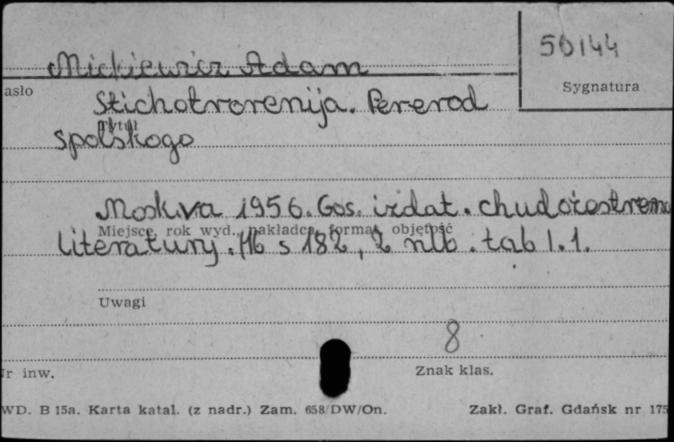 50144
Mickiewicz Adam
Sygnatura
asło
Stichotvorenija. Perevod
Tytuł
spolskogo
Moskva 1956. Gos. izdat. chudožestvenn
Miejsce, rok wyd., nakładca, format, objętość
literatury. 16 s 182, 2 nlb. tabl. 1.
Uwagi
8
r inw.
Znak klas.
WD. B 15a. Karta katal. (z nadr.) Zam. 658/DW/On.
Zakł. Graf. Gdańsk nr 175